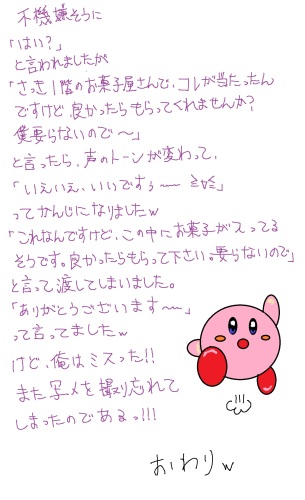 不機嫌そうに
「はい?」
と言われましたが
「さっき1階のお菓子屋さんで、コレが当たったん
ですけど、良かったらもらってくれませんか?
僕要らないので〜」
と言ったら、声のトーンが変わって、
「いえいえ、いいですぅ〜〜 ≧▽≦」
ってかんじになりましたw
「これなんですけど、この中にお菓子が入ってる
そうです。良かったらもらって下さい。要らないので」
と言って渡してしまいました。
「ありがとうございます〜〜」
って言ってましたw
けど、俺はミスった!!
また写メを撮り忘れて
しまったのであるっ!!!
おわりw